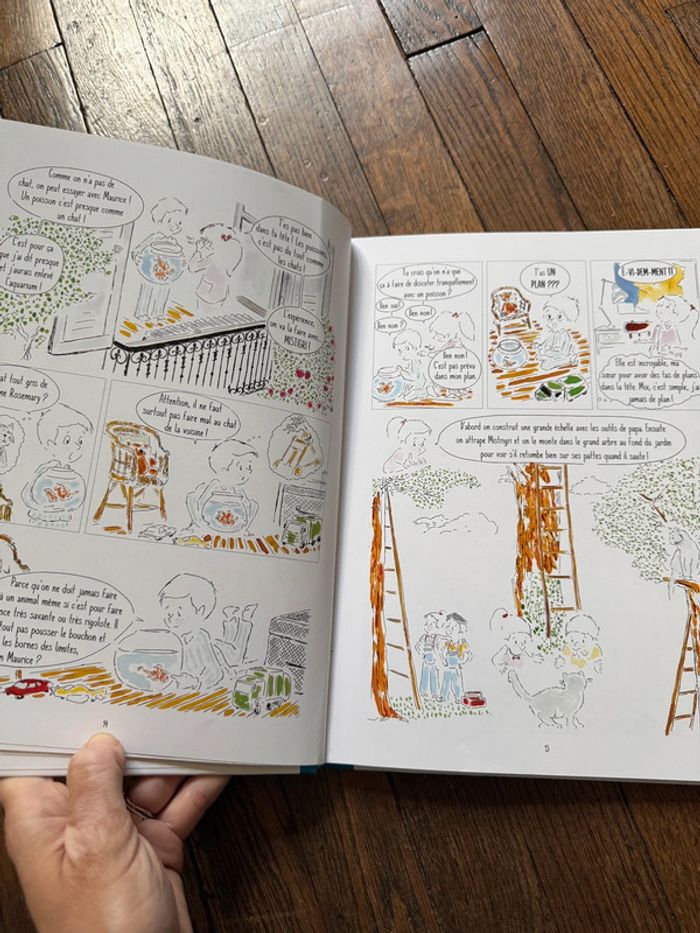 Comme on n'a pas de
chat, on peut essayer avec Maurice !
Un poisson c'est presque comme
un chat !
T'es pas bien
dans ta tête ! Les poissons,
c'est pas du tout comme
les chats !
C'est pour ça
que j'ai dit presque
et j'aurais enlevé
l'aquarium !
L'expérience,
on va la faire avec
MISTIGRI !
tout gris de
Rosemary ?
Attention, il ne faut
surtout pas faire mal au chat
de la voisine !
Parce qu'on ne doit jamais faire
à un animal même si c'est pour faire
très savante ou très rigolote. Il
pas pousser le bouchon et
les bornes des limites,
Maurice ?
14
Tu crois qu'on n'a que
ça à faire de discuter tranquillement
avec un poisson ?
Ben oui !
Ben non !
Ben non ?
Ben non !
C'est pas prévu
dans mon plan
T'as UN
PLAN ???
É-VI-DEM-MENT !!
Elle est incroyable, ma
sœur pour avoir des tas de plans
dans la tête. Moi, c'est simple, j'ai
jamais de plan !
D'abord on construit une grande échelle avec les outils de papa. Ensuite
on attrape Mistigri et on le monte dans le grand arbre au fond du jardin
pour voir s'il retombe bien sur ses pattes quand il saute !
15